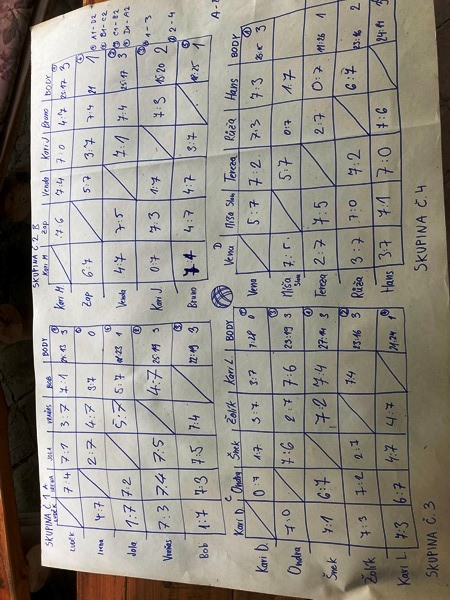 SKUPINA Č. 1 A
LUCK IRENA JOLA VENOUŠ BOB BODY
Luck 7:4 7:1 3:7 7:1 3
Irena 4:7 2:7 4:7 3:7 0
Jola 1:7 7:2 5:7 5:7 1
7:3 7:4 7:5 4:7 3
Bob 1:7 7:3 7:5 7:4 22:19 3
SKUPINA Č. 2 B
Kari M Zap Venda Kari J Bruno BODY
Kari M 7:6 7:4 7:0 4:7 25:17 3
Zap 6:7 5:7 3:7 7:4 21 1
Venda 4:7 7:5 7:1 7:4 25:17 3
Kari J 0:7 7:3 1:7 7:3 15:20 2
Bruno 7:4 4:7 4:7 3:7 18:25 1
A1-D2
B1-C2
C1-B2
D1-A2
1-3
2-4
C
Kari D. Ondra Šnek Žolík Kari L BODY
Kari D. 0:7 1:7 3:7 3:7 7:28 0
Ondra 7:0 7:6 2:7 7:6 23:19 3
Šnek 7:1 6:7 7:2 7:4 27:14 3
Žolík 7:3 7:2 2:7 7:4 23:16 3
Kari L 7:3 6:7 4:7 4:7 21:24 1
SKUPINA Č. 3
D
Vena Míša Slun Tereza Růža Hans BODY
Vena 5:7 7:2 7:3 7:3 3
Míša Slun 7:5 5:7 0:7 1:7 1
Tereza 2:7 7:5 2:7 0:7 11:26 1
Růža 3:7 7:0 7:2 6:7 23:16 2
Hans 3:7 7:1 7:0 7:6 24:14 3
SKUPINA Č. 4